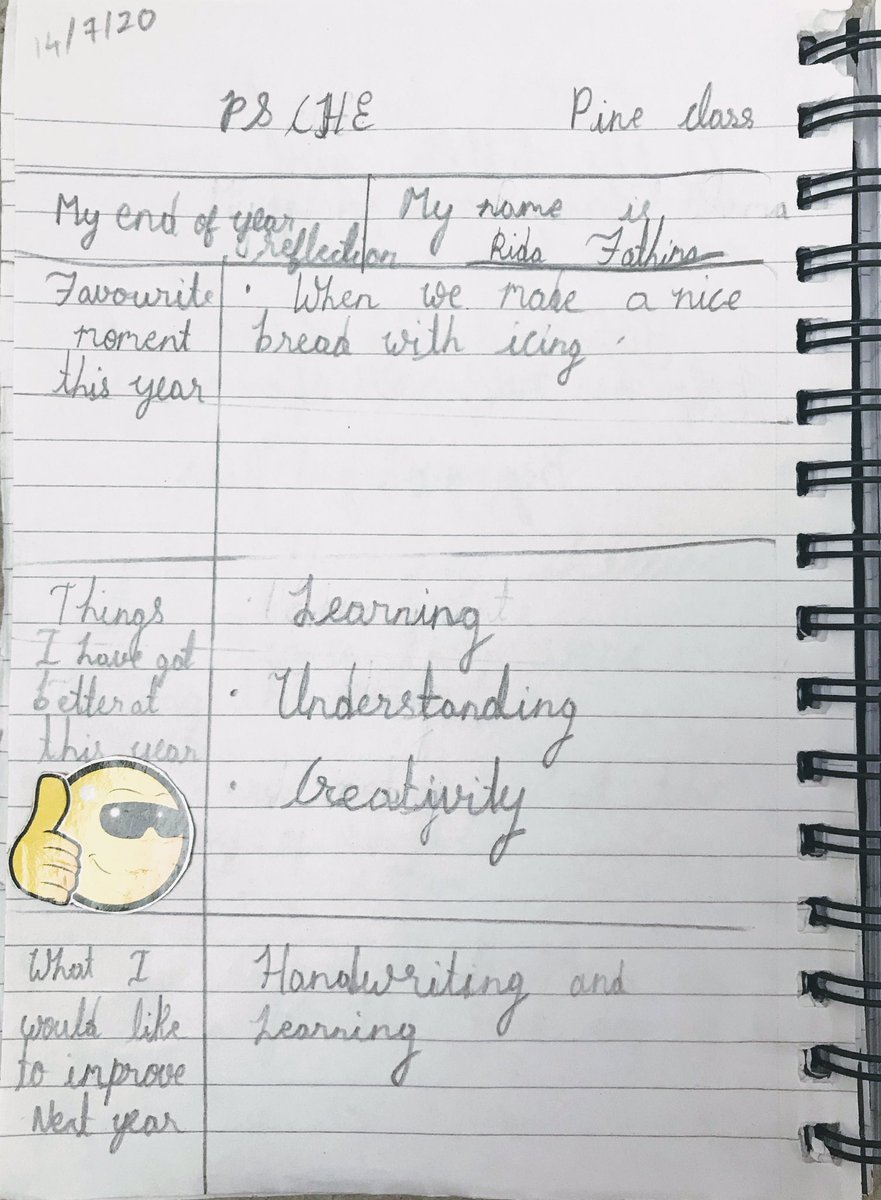 14/7/20
PSCHE Pine class
My end of year reflection
My name is
Rida Fathima
Favourite moment this year
• When we made a nice
bread with icing.
Things
I have got
better at
this year
Learning
• Understanding
• Creativity
What I
would like
to improve
Next year
Handwriting and
Learning